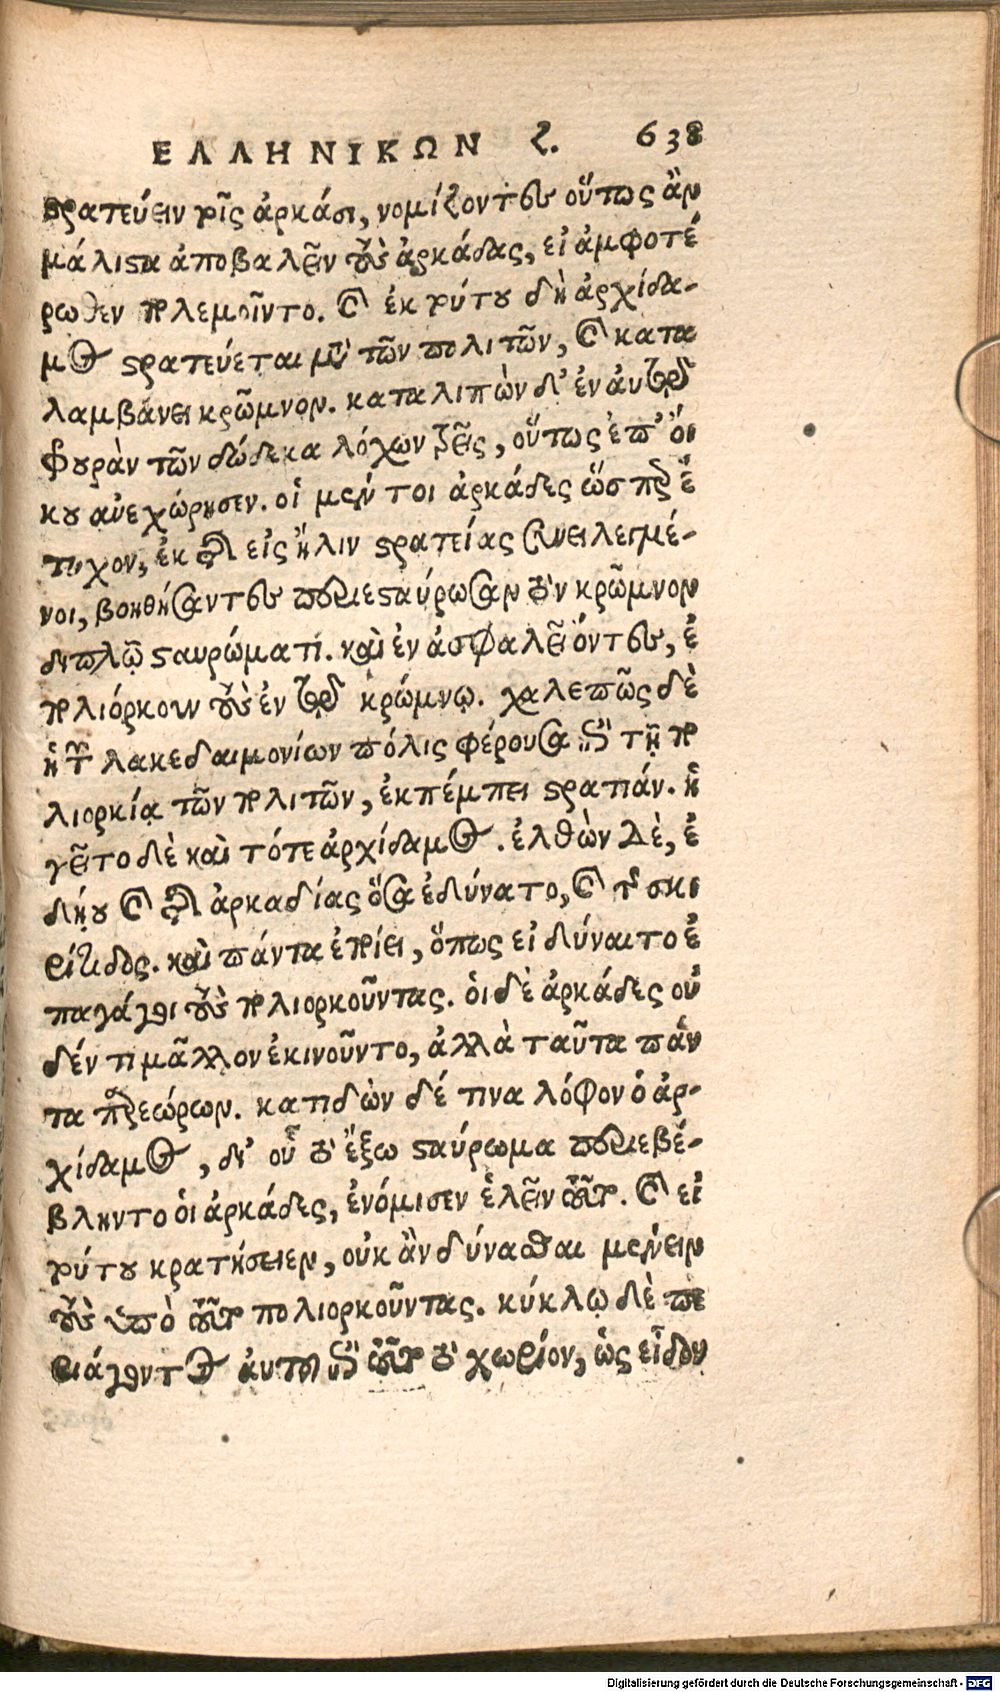 ΕΛΛΗΝΙΚΩΝ ζ. 638
στρατεύειν τοῖς ἀρκάσι, νομίζοντες οὕτως ἂν
μάλιστα ἀποβαλεῖν τοὺς ἀρκάδας, εἰ ἀμφοτέ
ρωθεν πολεμοῖντο. καὶ ἐκ τούτου δὴ ἀρχίδα-
μος στρατεύεται μετὰ τῶν πολιτῶν, καὶ κατα
λαμβάνει κρῶμνον. καταλιπὼν δ' ἐν αὐτῷ
φουρὰν τῶν δώδεκα λόχων τρεῖς, οὕτως ἐπ' οἴ
κου ἀνεχώρησεν. οἱ μέντοι ἀρκάδες ὥσπερ ἐ
τυχον, ἐκ τῆς εἰς ἦλιν στρατείας συνειλεγμέ-
νοι, βοηθήσαντες περιεσταύρωσαν τὸν κρῶμνον
διπλῷ σταυρώματι. καὶ ἐν ἀσφαλεῖ ὄντες, ἐ
πολιόρκουν τοὺς ἐν τῷ κρώμνῳ. χαλεπῶς δὲ
ἡ τῶν λακεδαιμονίων πόλις φέρουσα ἐπὶ τῇ πο
λιορκίᾳ τῶν πολιτῶν, ἐκπέμπει στρατιάν. ἡ
γεῖτο δὲ καὶ τότε ἀρχίδαμος. ἐλθὼν δὲ, ἐ
δῄου καὶ τῆς ἀρκαδίας ὅσα ἐδύνατο, καὶ τῆς σκι
ρίτιδος. καὶ πάντα ἐποίει, ὅπως εἰ δύναιτο ἐ
παγάγοι τοὺς πολιορκοῦντας. οἱ δὲ ἀρκάδες οὐ
δέν τι μᾶλλον ἐκινοῦντο, ἀλλὰ ταῦτα πάν
τα παρεώρων. κατιδὼν δέ τινα λόφον ὁ ἀρ-
χίδαμος, δι' οὗ τὸ ἔξω σταύρωμα περιεβέ-
βληντο οἱ ἀρκάδες, ἐνόμισεν ἑλεῖν τοῦτον. καὶ εἰ
τούτου κρατήσειεν, οὐκ ἂν δύνασθαι μένειν
τοὺς ὑπὸ τοῦτον πολιορκοῦντας. κύκλῳ δὲ πε
ριάγοντος αὐτοῦ ἐπὶ τοῦτο τὸ χωρίον, ὡς εἶδον
Digitalisierung gefördert durch die Deutsche Forschungsgemeinschaft - DFG